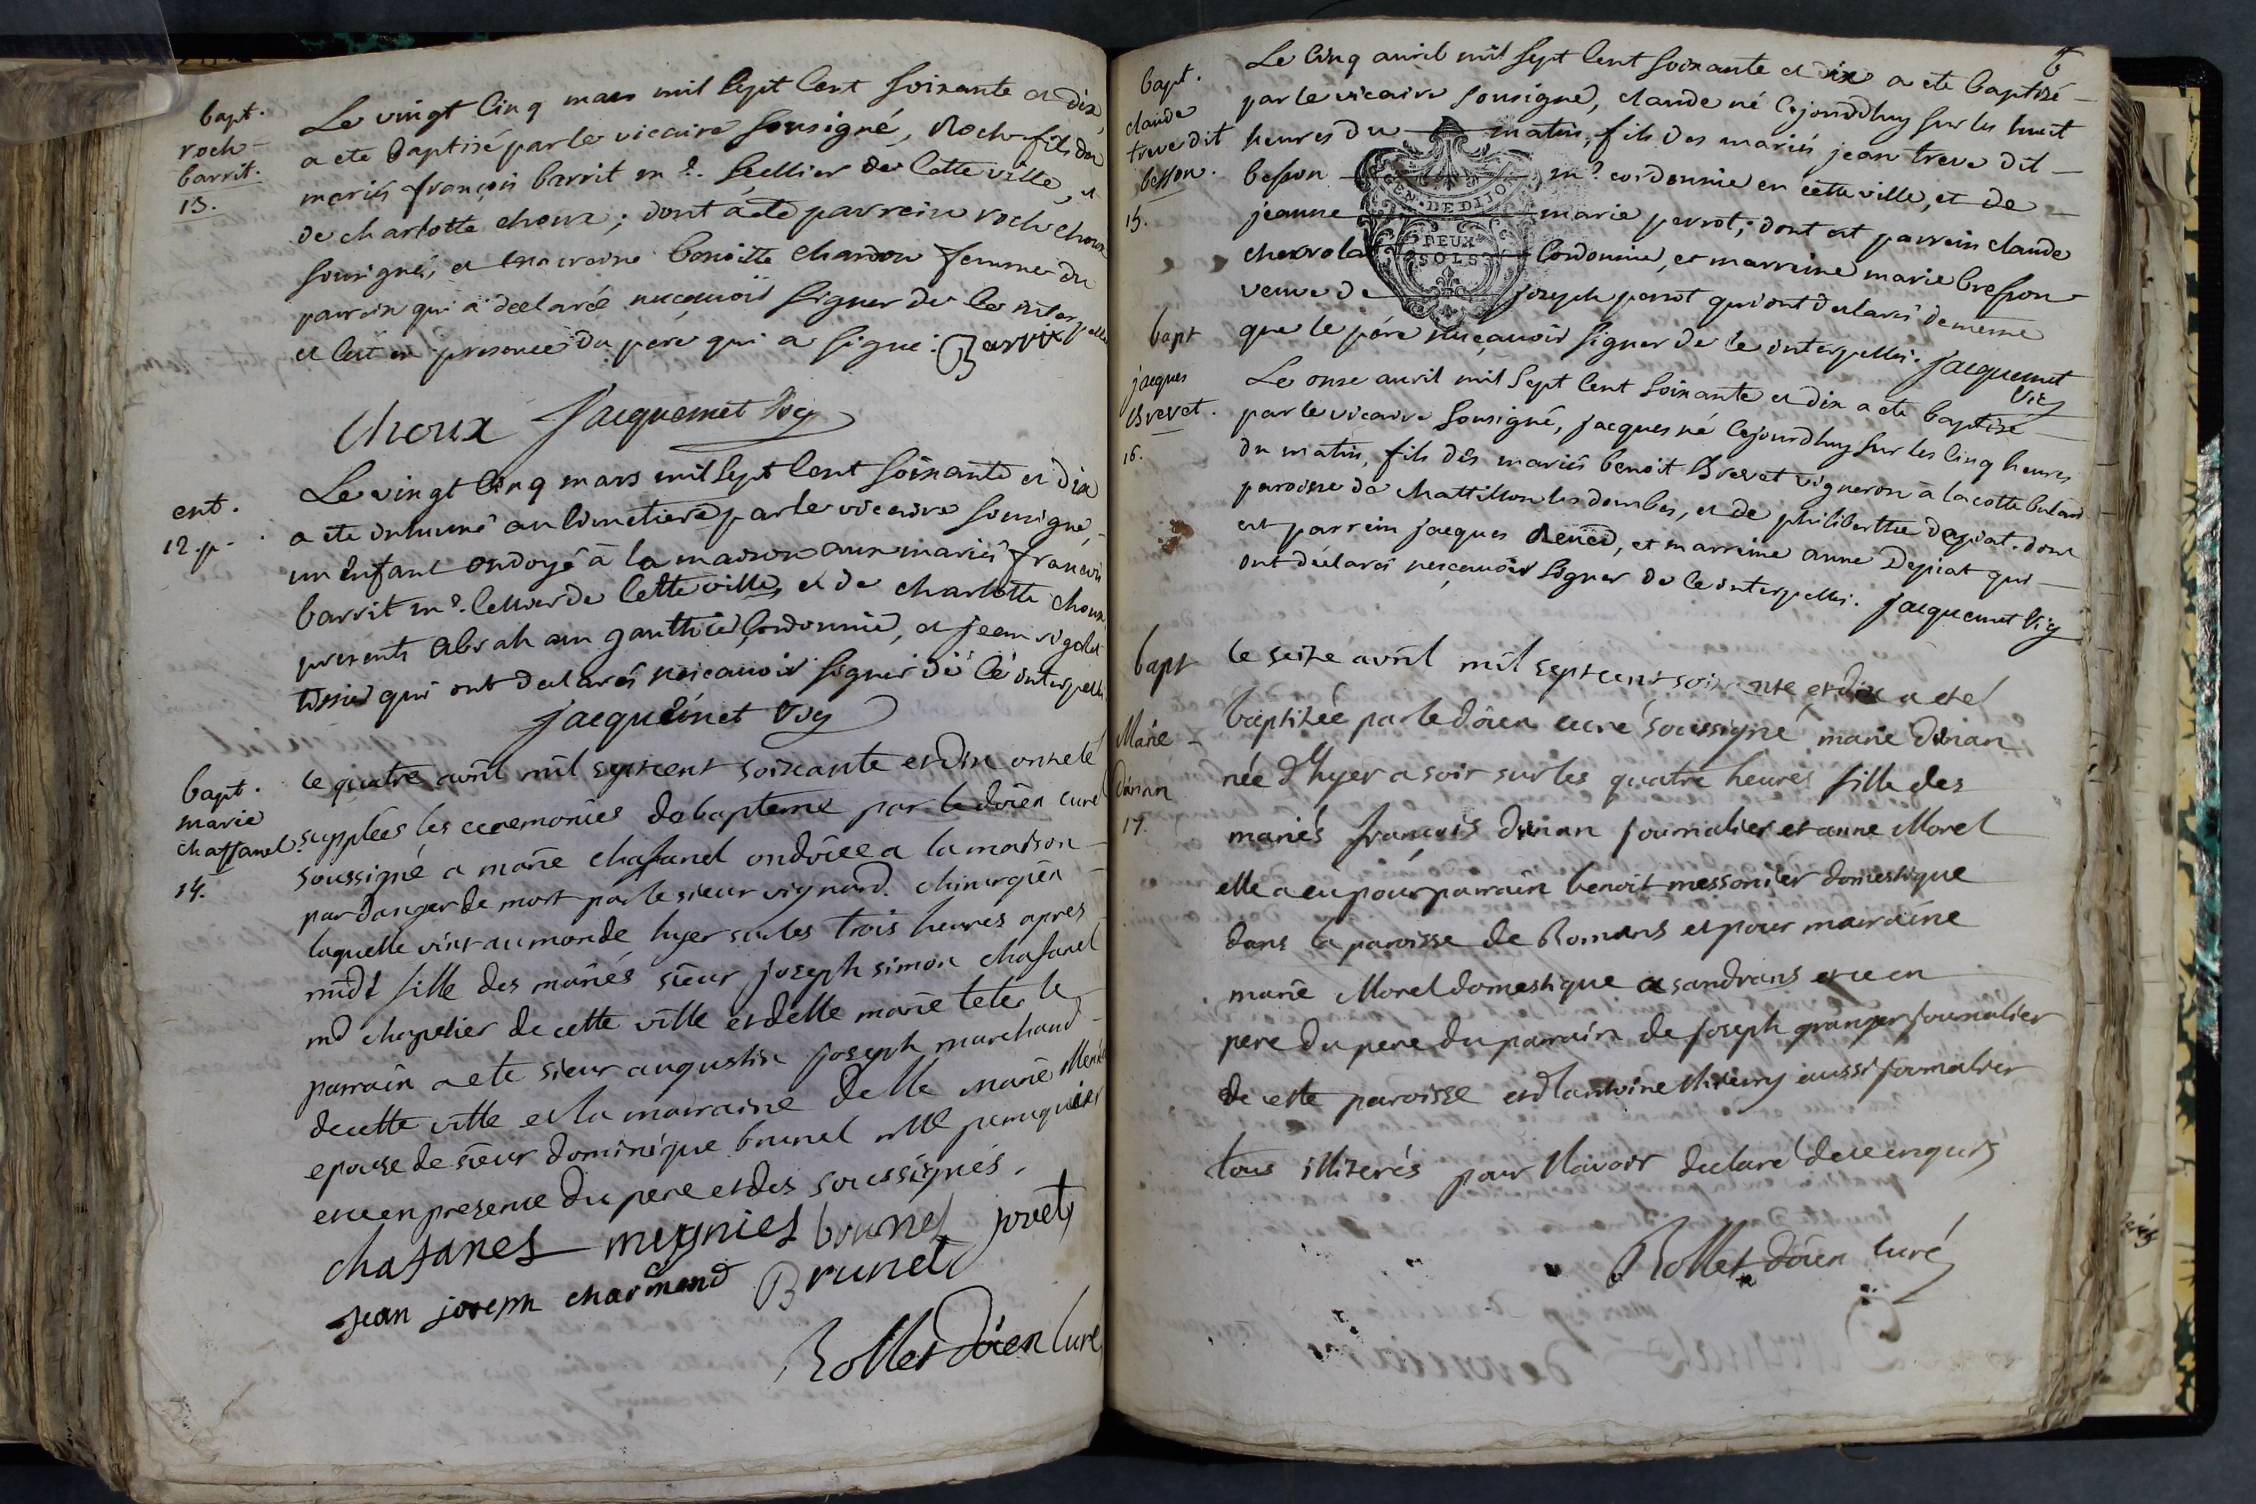 bapt.
roch
barrit.
13.
Le vingt cinq mars mil sept cent soixante et dix,
a ete baptisé par le vicaire sousigné, Roch fils des
mariés françois barrit m.e sellier de cette ville, et
de charlotte choux; dont a été parrein roch choux
sousigné, et marreine benoitte chardon femme du
parrein qui a declarée nesçavoir signer de ce interpellée
et cest en presence du pére qui a signé. Barrit
Choux Jacquemet vic
ent.
12. p.
Le vingt cinq mars mil sept cent soixante et dix
a ete inhumé au cimetiere par le vicaire sousigné,
un enfant ondoyé à la maison aux mariés françois
barrit m.e sellier de cette ville, et de charlotte choux
presents abraham gauthier cordonnier, et jean rigolet
tissier qui ont declarés nesçavoir signer de ce interpellés
jacquemet vic
bapt.
marie
chassanel
14.
le quatre avril mil sept cent soixante et dix ont eté
supplées les ceremonies de bapteme par le doien curé
soussigné a marie chasanel ondoiée a la maison
par danger de mort par le sieur vignard chirurgien
laquelle vint au monde hyer sur les trois heures apres
midi fille des mariés sieur joseph simon chasanel
md chapelier de cette ville et delle marie teter le
parrain a ete sieur augustin joseph marchand
de cette ville et la marraine delle marie
epouse de sieur dominique brunel mtre peruquier
et ce en presence du pere et des soussignés.
chasanel meynier brunel jovet
jean joseph charmand Brunet
Rollet doien curé
6
bapt.
claude
treve dit
besson.
15.
Le cinq avril mil sept cent soixante et dix a ete baptisé
par le vicaire sousigné, claude né cejourdhuy sur les huit
heures du matin, fils des mariés jean treve dit
besson m.e cordonnier en cette ville, et de
jeanne marie perrot; dont est parrein claude
chevrolat cordonnier, et marreine marie bresson
veuve de joseph perrot qui ont declarés de meme
que le pére nesçavoir signer de ce interpellés. jacquemet
vic
GEN. DE DIJON
DEUX
SOLS
bapt
jacques
Brevet.
16.
Le onze avril mil sept cent soixante et dix a ete baptisé
par le vicaire sousigné, jacques né cejourdhuy sur les cinq heures
du matin, fils des mariés benoit Brevet vigneron à la cotte
paroisse de chattillon les dombes, et de philiberthe depiat. dont
est parrein jacques, et marreine anne Depiat qui
ont déclarés nesçavoir signer de ce interpellés. jacquemet vic
bapt
Marie
dinan
17.
le seize avril mil sept cent soixante et dix a eté
baptisée par le doien curé soussigné marie dinan
née d'hyer a soir sur les quatre heures fille des
mariés françois dinan journalier et anne Morel
elle a eu pour parrain benoit messonier domestique
dans la paroisse de Romans et pour marraine
marie Morel domestique a sandrans et ce en
pere du pere du parrain de joseph granger journalier
de cette paroisse et d'antoine thieury aussi journalier
tous illiterés pour l'avoir declaré de ce enquis
Rollet doien curé